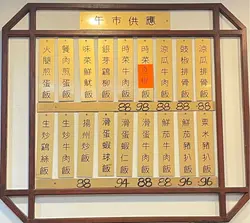 午市供應
涼瓜排骨飯
豉椒排骨飯
涼瓜牛肉飯
時菜
時菜牛肉飯
銀芽鷄柳飯
味菜鮮魷飯
餐肉煎蛋飯
火腿煎蛋飯
88 93 88 88 88
粟米豬扒飯
鮮茄豬扒飯
鮮茄牛肉飯
滑蛋牛肉飯
滑蛋蝦仁飯
滑蛋蝦球飯
揚州炒飯
生炒牛肉飯
生炒鷄絲飯
88 94 88 88 96 96